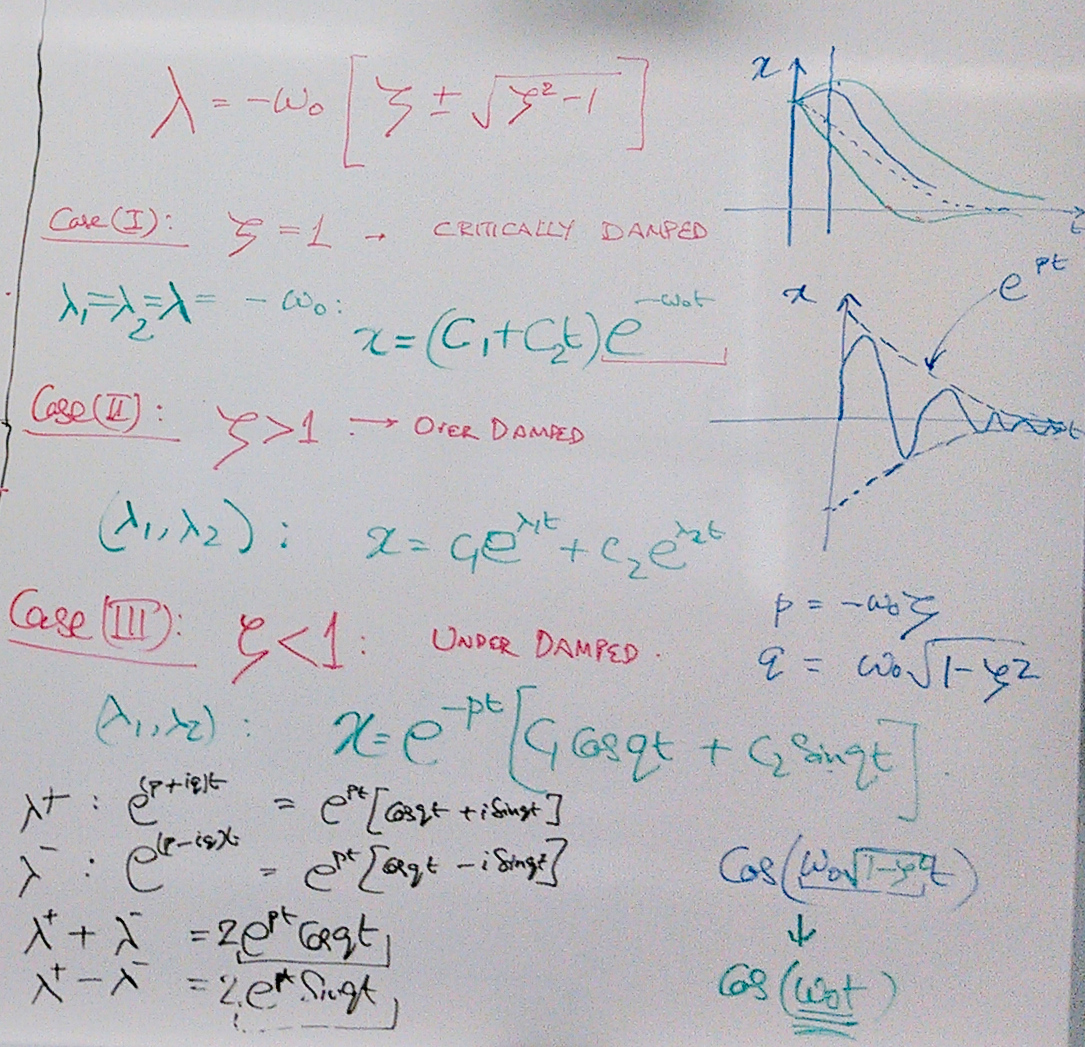 λ = -ω₀ [ ζ ± √(ζ² - 1) ]
Case (I): ζ = 1 → CRITICALLY DAMPED
λ₁ = λ₂ = λ = -ω₀:
x = (C₁ + C₂t) e^(-ω₀t)
Case (II): ζ > 1 → OVER DAMPED
(λ₁, λ₂): x = C₁e^(λ₁t) + C₂e^(λ₂t)
Case (III): ζ < 1: UNDER DAMPED.
(λ₁, λ₂): x = e^(-pt) [C₁ Cosqt + C₂ Sinqt].
λ⁺: e^((p+iq)t) = e^(pt) [Cosqt + i Sinqt]
λ⁻: e^((p-iq)t) = e^(pt) [Cosqt - i Sinqt]
λ⁺ + λ⁻ = 2e^(pt) Cosqt
λ⁺ - λ⁻ = 2e^(pt) Sinqt
x
t
x
e^(pt)
t
p = -ω₀ζ
q = ω₀√(1 - ζ²)
Cos(ω₀√(1-ζ²)t)
↓
Cos(ω₀t)